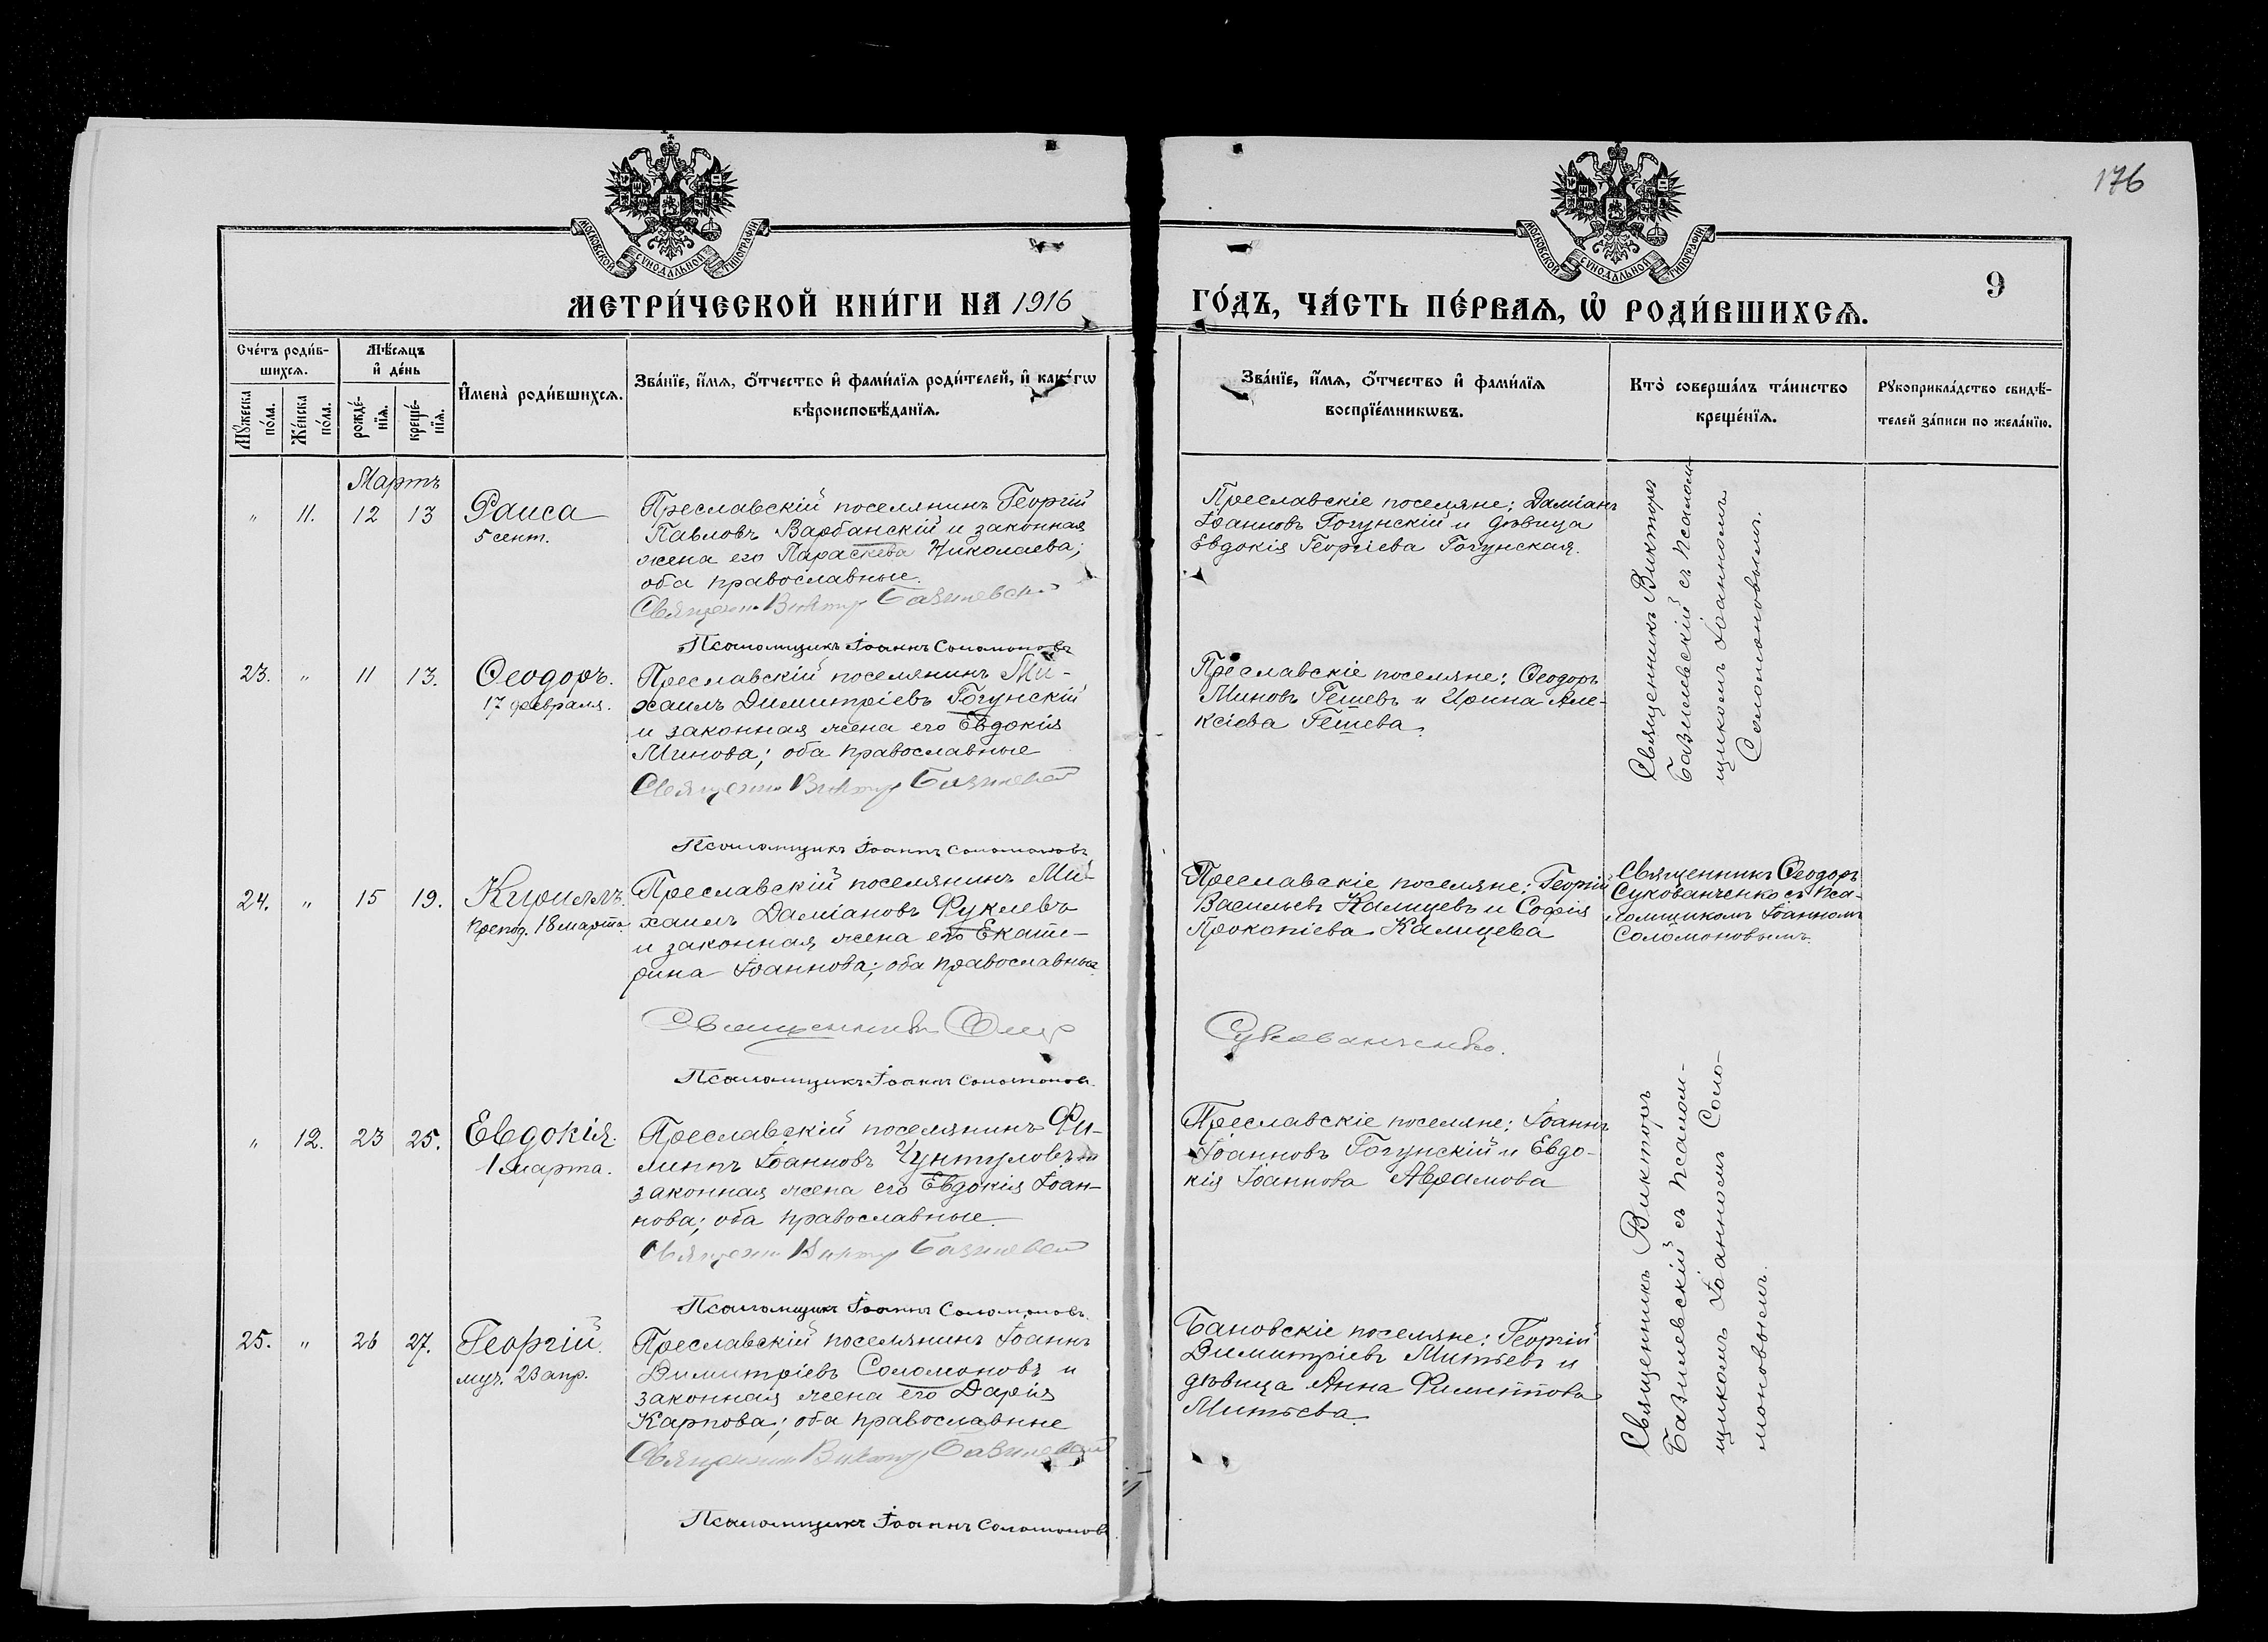 176
МОСКОВСКОЙ СѴНОДАЛЬНОЙ ТИПОГРАФІИ
МОСКОВСКОЙ СѴНОДАЛЬНОЙ ТИПОГРАФІИ
9
МЕТРИ́ЧЕСКОЙ КНИ́ГИ НА 1916
ГО́ДЪ, ЧА́СТЬ ПЕ́РВАѦ, Ѽ РОДИ́ВШИХСѦ.
Сче́тъ роди́в-
шихсѧ.
Мѣ́сѧцъ
и҆ де́нь
Мꙋ́жеска
по́ла.
Же́нска
по́ла.
рожде́-
нїѧ.
креще́-
нїѧ.
И҆мена̀ роди́вшихсѧ.
Зва́нїе, и҆́мѧ, ѻ҆́тчество и҆ фами́лїѧ роди́телей, и҆ како́гѡ
вѣроисповѣ́данїѧ.
Зва́нїе, и҆́мѧ, ѻ҆́тчество и҆ фами́лїѧ
воспрїе́мникѡвъ.
Кто̀ соверша́лъ та́инство
креще́нїѧ.
Рꙋкоприкла́дство свидѣ́-
телей за́писи по жела́нїю.
Мартъ
" 11. 12 13 Раиса
5 сент.
Преславскій поселянинъ Георгій
Павловъ Варбанскій и законная
жена его Параскева Николаева;
оба православные.
Священ. Виктор Базилевскій
Псаломщикъ Іоаннъ Соломоновъ
Преславскіе поселяне: Даміанъ
Іоанновъ Гогунскій и дѣвица
Евдокія Георгіева Гогунская.
Священникъ Викторъ
Базилевскій съ псалом-
щикомъ Іоанномъ
Соломоновымъ.
23. " 11 13. Ѳеодоръ.
17 февраля.
Преславскій поселянинъ Ми-
хаилъ Димитріевъ Гогунскій
и законная жена его Евдокія
Минова; оба православные
Священ. Виктор Базилевскій
Псаломщикъ Іоаннъ Соломоновъ
Преславскіе поселяне: Ѳеодоръ
Миновъ Гешевъ и Ирина Але-
ксіева Гешева.
24. " 15 19. Кириллъ.
препод. 18 марта
Преславскій поселянинъ Ми-
хаилъ Даміановъ Фуклевъ
и законная жена его Екате-
рина Іоаннова; оба православные.
Священникъ Ѳеод.
Псаломщикъ Іоаннъ Соломоновъ.
Преславскіе поселяне: Георгій
Васильевъ Калицевъ и Софія
Прокопіева Калицева
Сукованченко.
Священникъ Ѳеодоръ
Сукованченко съ пса-
ломщикомъ Іоанномъ
Соломоновымъ.
" 12. 23 25. Евдокія.
1 марта.
Преславскій поселянинъ Фи-
липпъ Іоанновъ Чунтуловъ и
законная жена его Евдокія Іоан-
нова; оба православные.
Священ. Виктор Базилевскій
Псаломщикъ Іоаннъ Соломоновъ.
Преславскіе поселяне: Іоаннъ
Іоанновъ Гогунскій и Евдо-
кія Іоаннова Аврамова
Священникъ Викторъ
Базилевскій съ псалом-
щикомъ Іоанномъ Соло-
моновымъ.
25. " 26 27. Георгій.
муч. 23 апр.
Преславскій поселянинъ Іоаннъ
Димитріевъ Соломоновъ и
законная жена его Дарія
Карпова; оба православные
Священ. Виктор Базилевскій
Псаломщикъ Іоаннъ Соломоновъ
Бановскіе поселяне: Георгій
Димитріевъ Митевъ и
дѣвица Анна Филиппова
Митева.